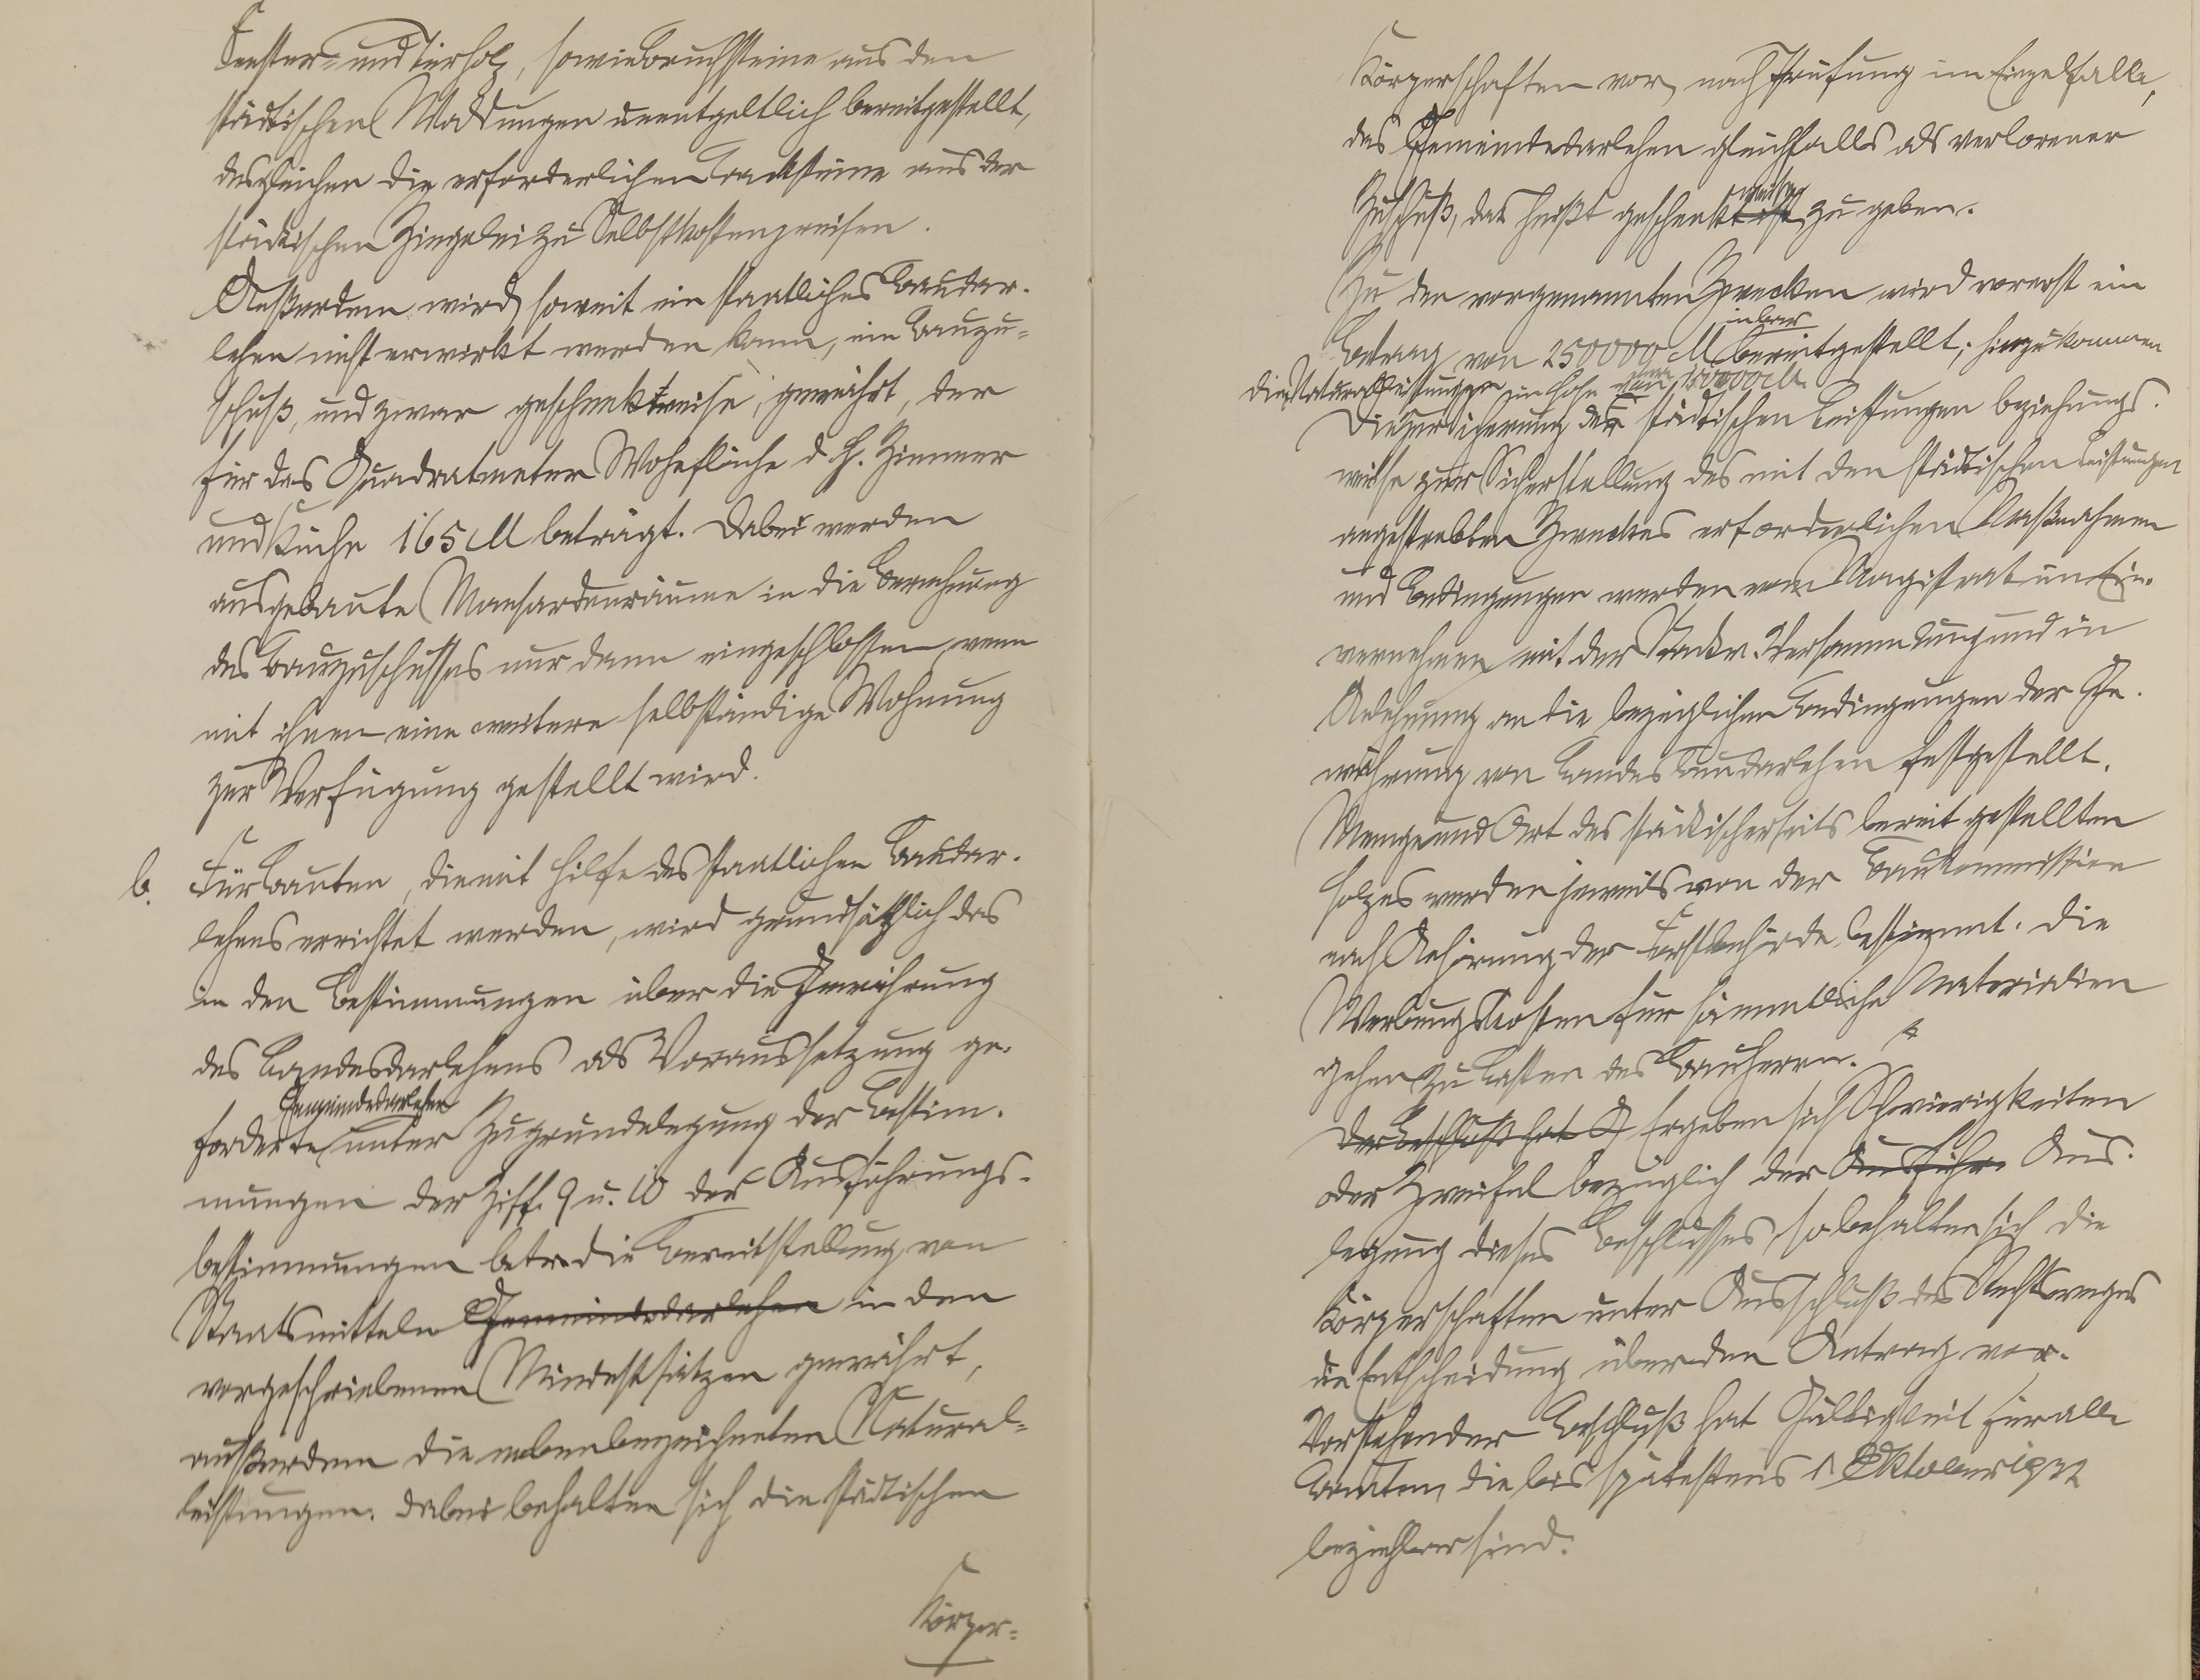 Fenster- und Türholz, sowie Bruchsteine aus den
städtischen Waldungen unentgeltlich bereitgestellt,
desgleichen die erforderlichen Backsteine aus der
städtischen Ziegelei zu Selbstkostenpreisen.
Außerdem wird, soweit ein staatliches Baudar-
lehen nicht erwirkt werden kann, ein Bauzu-
schuß, und zwar geschenkweise, gewährt, der
für das Quadratmeter Wohnfläche d. h. Zimmer
und Küche 165 M beträgt. Dabei werden
ausgebaute Mansardenräume in die Berechnung
des Bauzuschusses nur dann eingeschlossen, wenn
mit ihnen eine weitere selbständige Wohnung
zur Verfügung gestellt wird.
b. Für Bauten, die mit Hilfe des staatlichen Baudar-
lehens errichtet werden, wird grundsätzlich das
in den Bestimmungen über die Gewährung
des Landesdarlehens als Voraussetzung ge-
Gemeindedarlehen
forderte unter Zugrundelegung der Bestim-
mungen der Ziff. 9 u. 10 der Ausführungs-
bestimmungen betr. die Bereitstellung von
Staatsmitteln Gemeindedarlehen in den
vorgeschriebenen Mindestsätzen gewährt,
außerdem die nebenbezeichneten Natural-
leistungen. Dabei behalten sich die städtischen
Körper-
Körperschaften vor, nach Prüfung im Einzelfalle,
das Gemeindedarlehen gleichfalls als verlorener
Zuschuß, das heißt geschenkweise zu geben.
Zu den vorgenannten Zwecken wird vorerst ein
in bar
Betrag von 250000 M bereitgestellt; hinzu kommen
die Naturalleistungen im Höhe von 150000 M.
Die zur Sicherung der städtischen Leistungen beziehungs-
weise zur Sicherstellung des mit den städtischen Leistungen
angestrebten Zweckes erforderlichen Maßnahmen
und Bedingungen werden vom Magistrat im Ein-
vernehmen mit der Stadtv. Versammlung und in
Anlehnung an die bezüglichen Bedingungen der Ge-
währung von Landesbaudarlehen festgestellt.
Menge und Art des städtischerseits bereit gestellten
Holzes werden jeweils von der Baukommission
nach Anhörung der Forstbehörde bestimmt. Die
Werbungskosten für sämmtliche Materialien
gehen zu Lasten des Bauherrn.
Der Beschluß hat G Ergeben sich Schwierigkeiten
oder Zweifel bezüglich der Ausführ Aus-
legung dieses Beschlusses, so behalten sich die
Körperschaften unter Ausschluß des Rechtsweges
die Entscheidung über den Antrag vor.
Vorstehender Beschluß hat Gültigkeit für alle
Bauten, die bis spätestens 1 Oktober 1922
beziehbar sind.